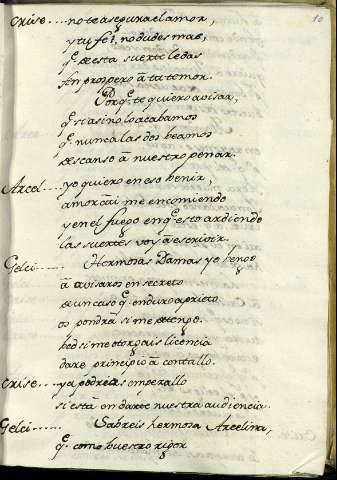 10
Crise.... no te asegura el amor,
y tu fe, no dudes mas,
q̃ de esta suerte le das
fin prospero a tu temor.
Porq̃ te quiero avisar,
q̃ si asi no lo acabamos
q̃ nunca las dos beamos
descanso a nuestro penar.
Arcel... yo quiero en eso benir,
a mor me encomiendo
y en el fuego en q̃ esto ardiendo
las suertes voy a escrivir.
Gelci..... Hermosas Damas yo bengo
a avisaros en secreto
de un caso q̃ en duro aprieto
os pondra si me detengo.
bed si me otorgais licencia
dare principio a contallo.
Crise.... ya podreis empezallo
si está en darte nuestra audiencia.
Gelci...... Sabreis hermosa Arcelina,
q̃ como buestro rigor